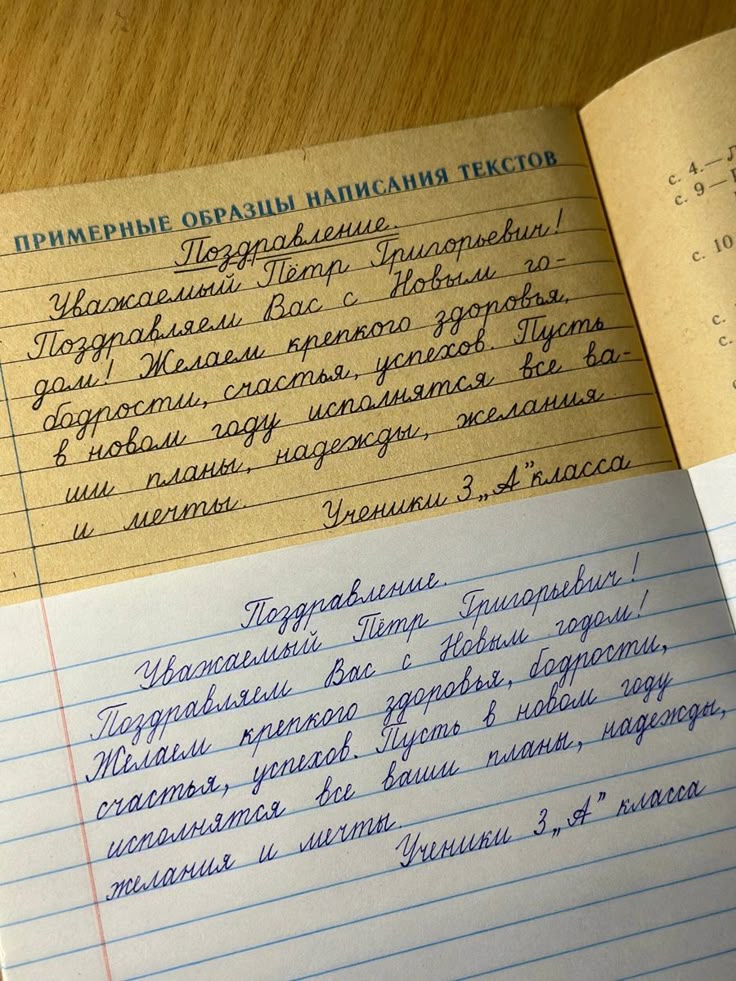 ПРИМЕРНЫЕ ОБРАЗЦЫ НАПИСАНИЯ ТЕКСТОВ
Поздравление.
Уважаемый Пётр Григорьевич!
Поздравляем Вас с Новым го-
дом! Желаем крепкого здоровья,
бодрости, счастья, успехов. Пусть
в новом году исполнятся все ва-
ши планы, надежды, желания
и мечты.
Ученики 3 „А” класса
с. 4.—
с. 9—
с. 10
с.
с.
Поздравление.
Уважаемый Пётр Григорьевич!
Поздравляем Вас с Новым годом!
Желаем крепкого здоровья, бодрости,
счастья, успехов. Пусть в новом году
исполнятся все ваши планы, надежды,
желания и мечты.
Ученики 3 „А” класса